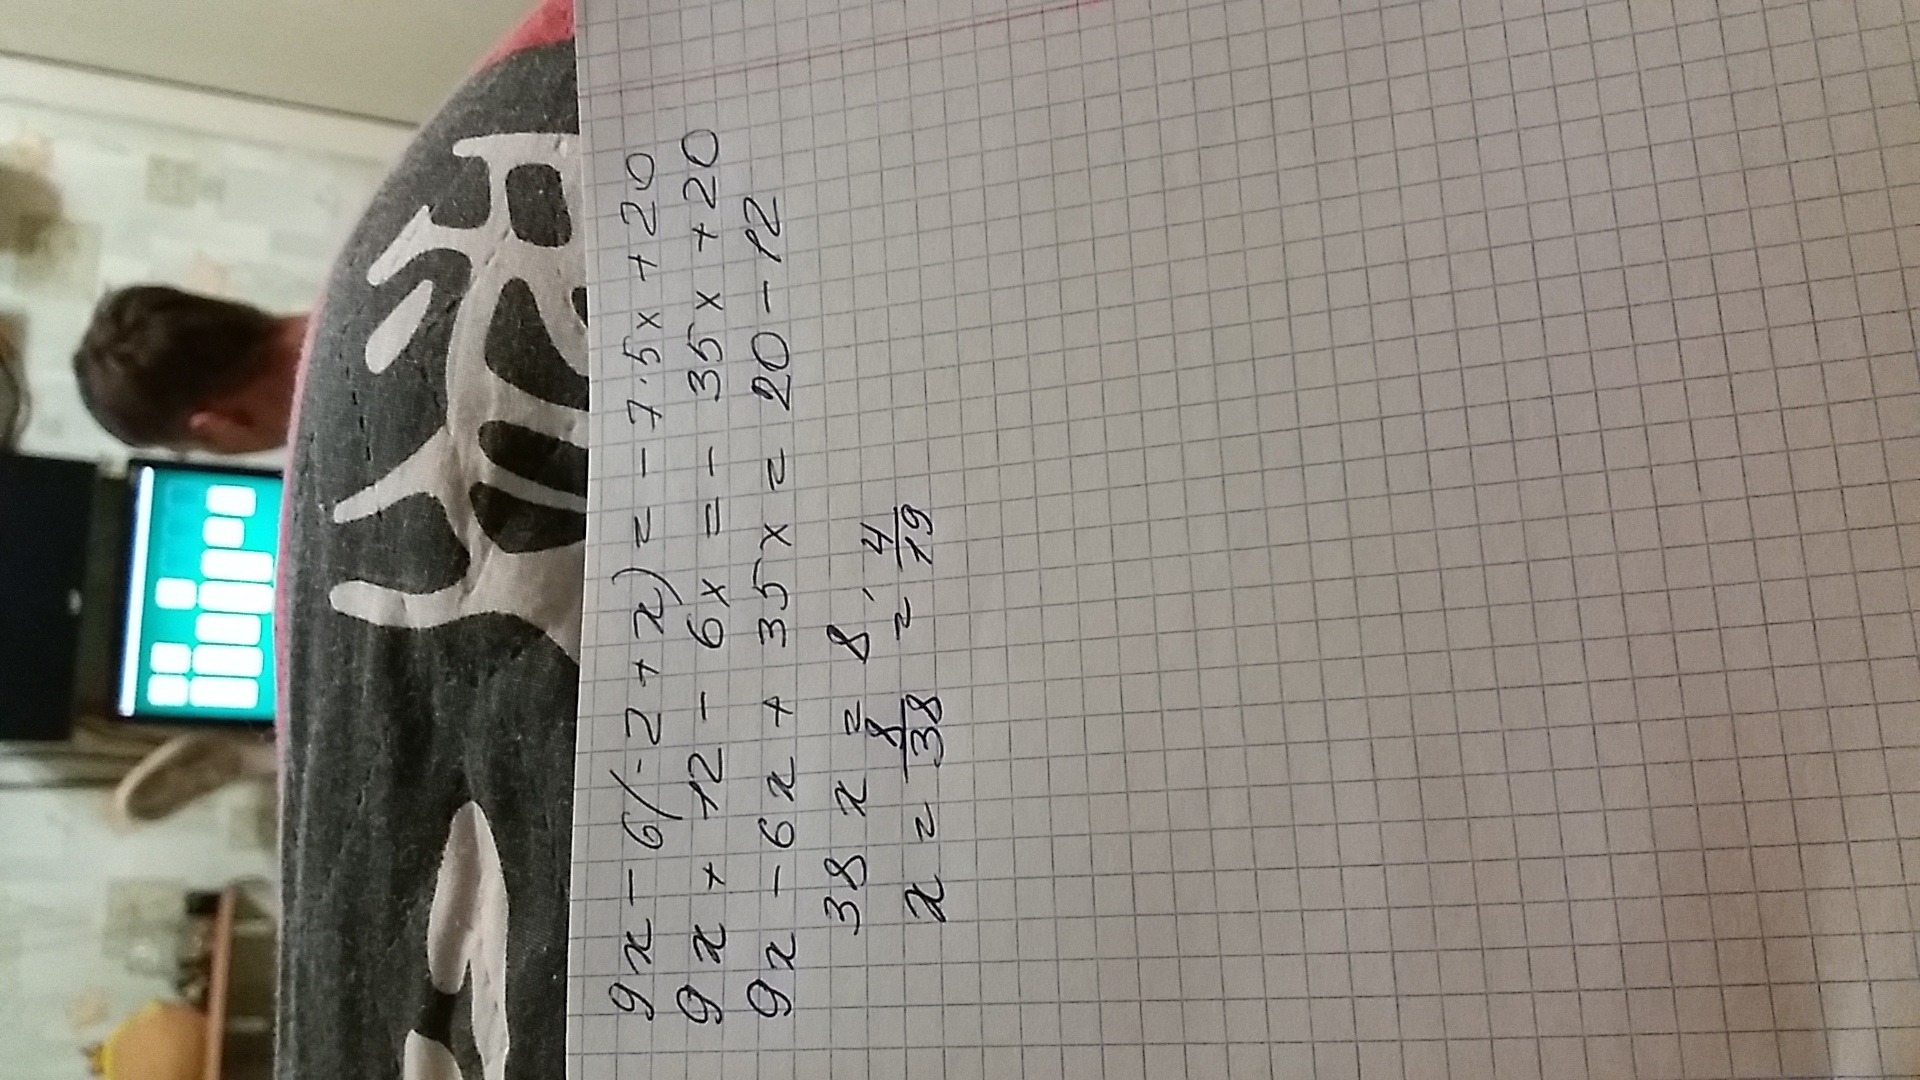 9x - 6(-2 + x) = - 7·5x + 20
9x + 12 - 6x = - 35x + 20
9x - 6x + 35x = 20 - 12
38x = 8
x = 8/38 = 4/19